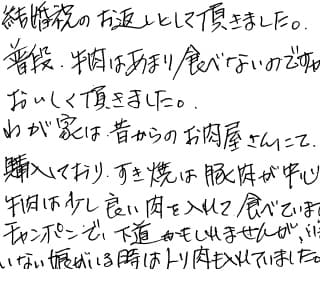 結婚祝のお返しとして頂きました。
普段、牛肉はあまり食べないのですが
おいしく頂きました。
わが家は昔からのお肉屋さんにて、
購入しており、すき焼は豚肉が中心
牛肉は少し良い肉を入れて食べています
チャンポンで、下道かもしれませんが、
いない娘がいる時はトリ肉も入れていました。